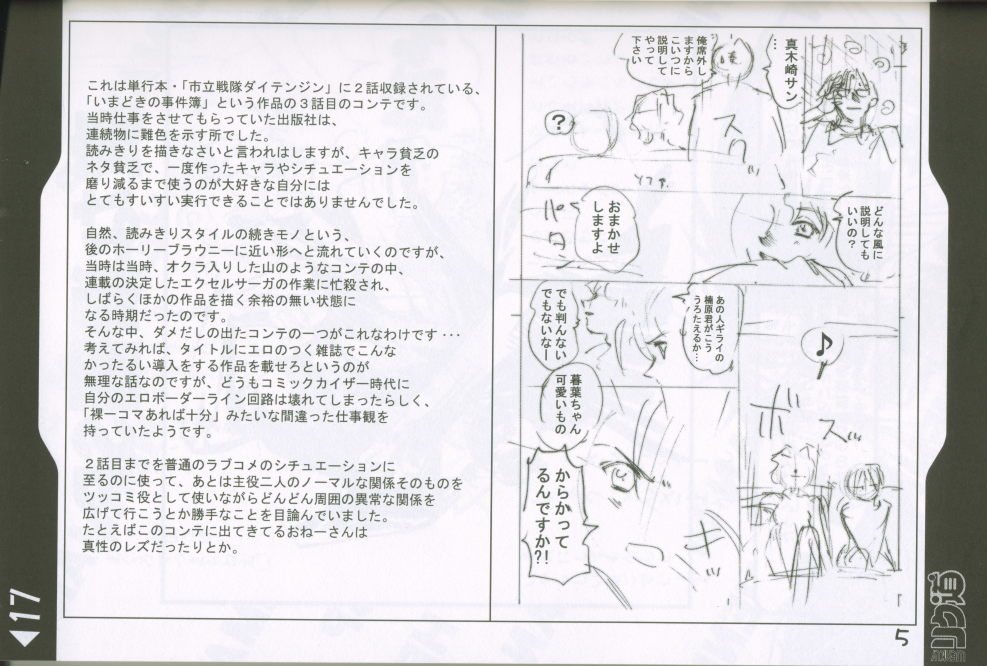 これは単行本・「市立戦隊ダイテンジン」に２話収録されている、
「いまどきの事件簿」という作品の３話目のコンテです。
当時仕事をさせてもらっていた出版社は、
連続物に難色を示す所でした。
読みきりを描きなさいと言われはしますが、キャラ貧乏の
ネタ貧乏で、一度作ったキャラやシチュエーションを
磨り減るまで使うのが大好きな自分には
とてもすいすい実行できることではありませんでした。
自然、読みきりスタイルの続きモノという、
後のホーリーブラウニーに近い形へと流れていくのですが、
当時は当時、オクラ入りした山のようなコンテの中、
連載の決定したエクセルサーガの作業に忙殺され、
しばらくほかの作品を描く余裕の無い状態に
なる時期だったのです。
そんな中、ダメだしの出たコンテの一つがこれなわけです・・・
考えてみれば、タイトルにエロのつく雑誌でこんな
かったるい導入をする作品を載せろというのが
無理な話なのですが、どうもコミックカイザー時代に
自分のエロボーダーライン回路は壊れてしまったらしく、
「裸一コマあれば十分」みたいな間違った仕事観を
持っていたようです。
２話目までを普通のラブコメのシチュエーションに
至るのに使って、あとは主役二人のノーマルな関係そのものを
ツッコミ役として使いながらどんどん周囲の異常な関係を
広げて行こうとか勝手なことを目論んでいました。
たとえばこのコンテに出てきてるおねーさんは
真性のレズだったりとか。
真木崎サン
…
俺席外し
ますから
こいつに
説明して
やって
下さい
スッ
?
ソファ
どんな風に
説明しても
いいの？
おまかせ
しますよ
あの人ギライの
楠原君がこう
うろたえるか…
でも判んない
でもないなー
♪
ボスッ
暮葉ちゃん
可愛いもの
からかって
るんですか?!
キッ
5
17